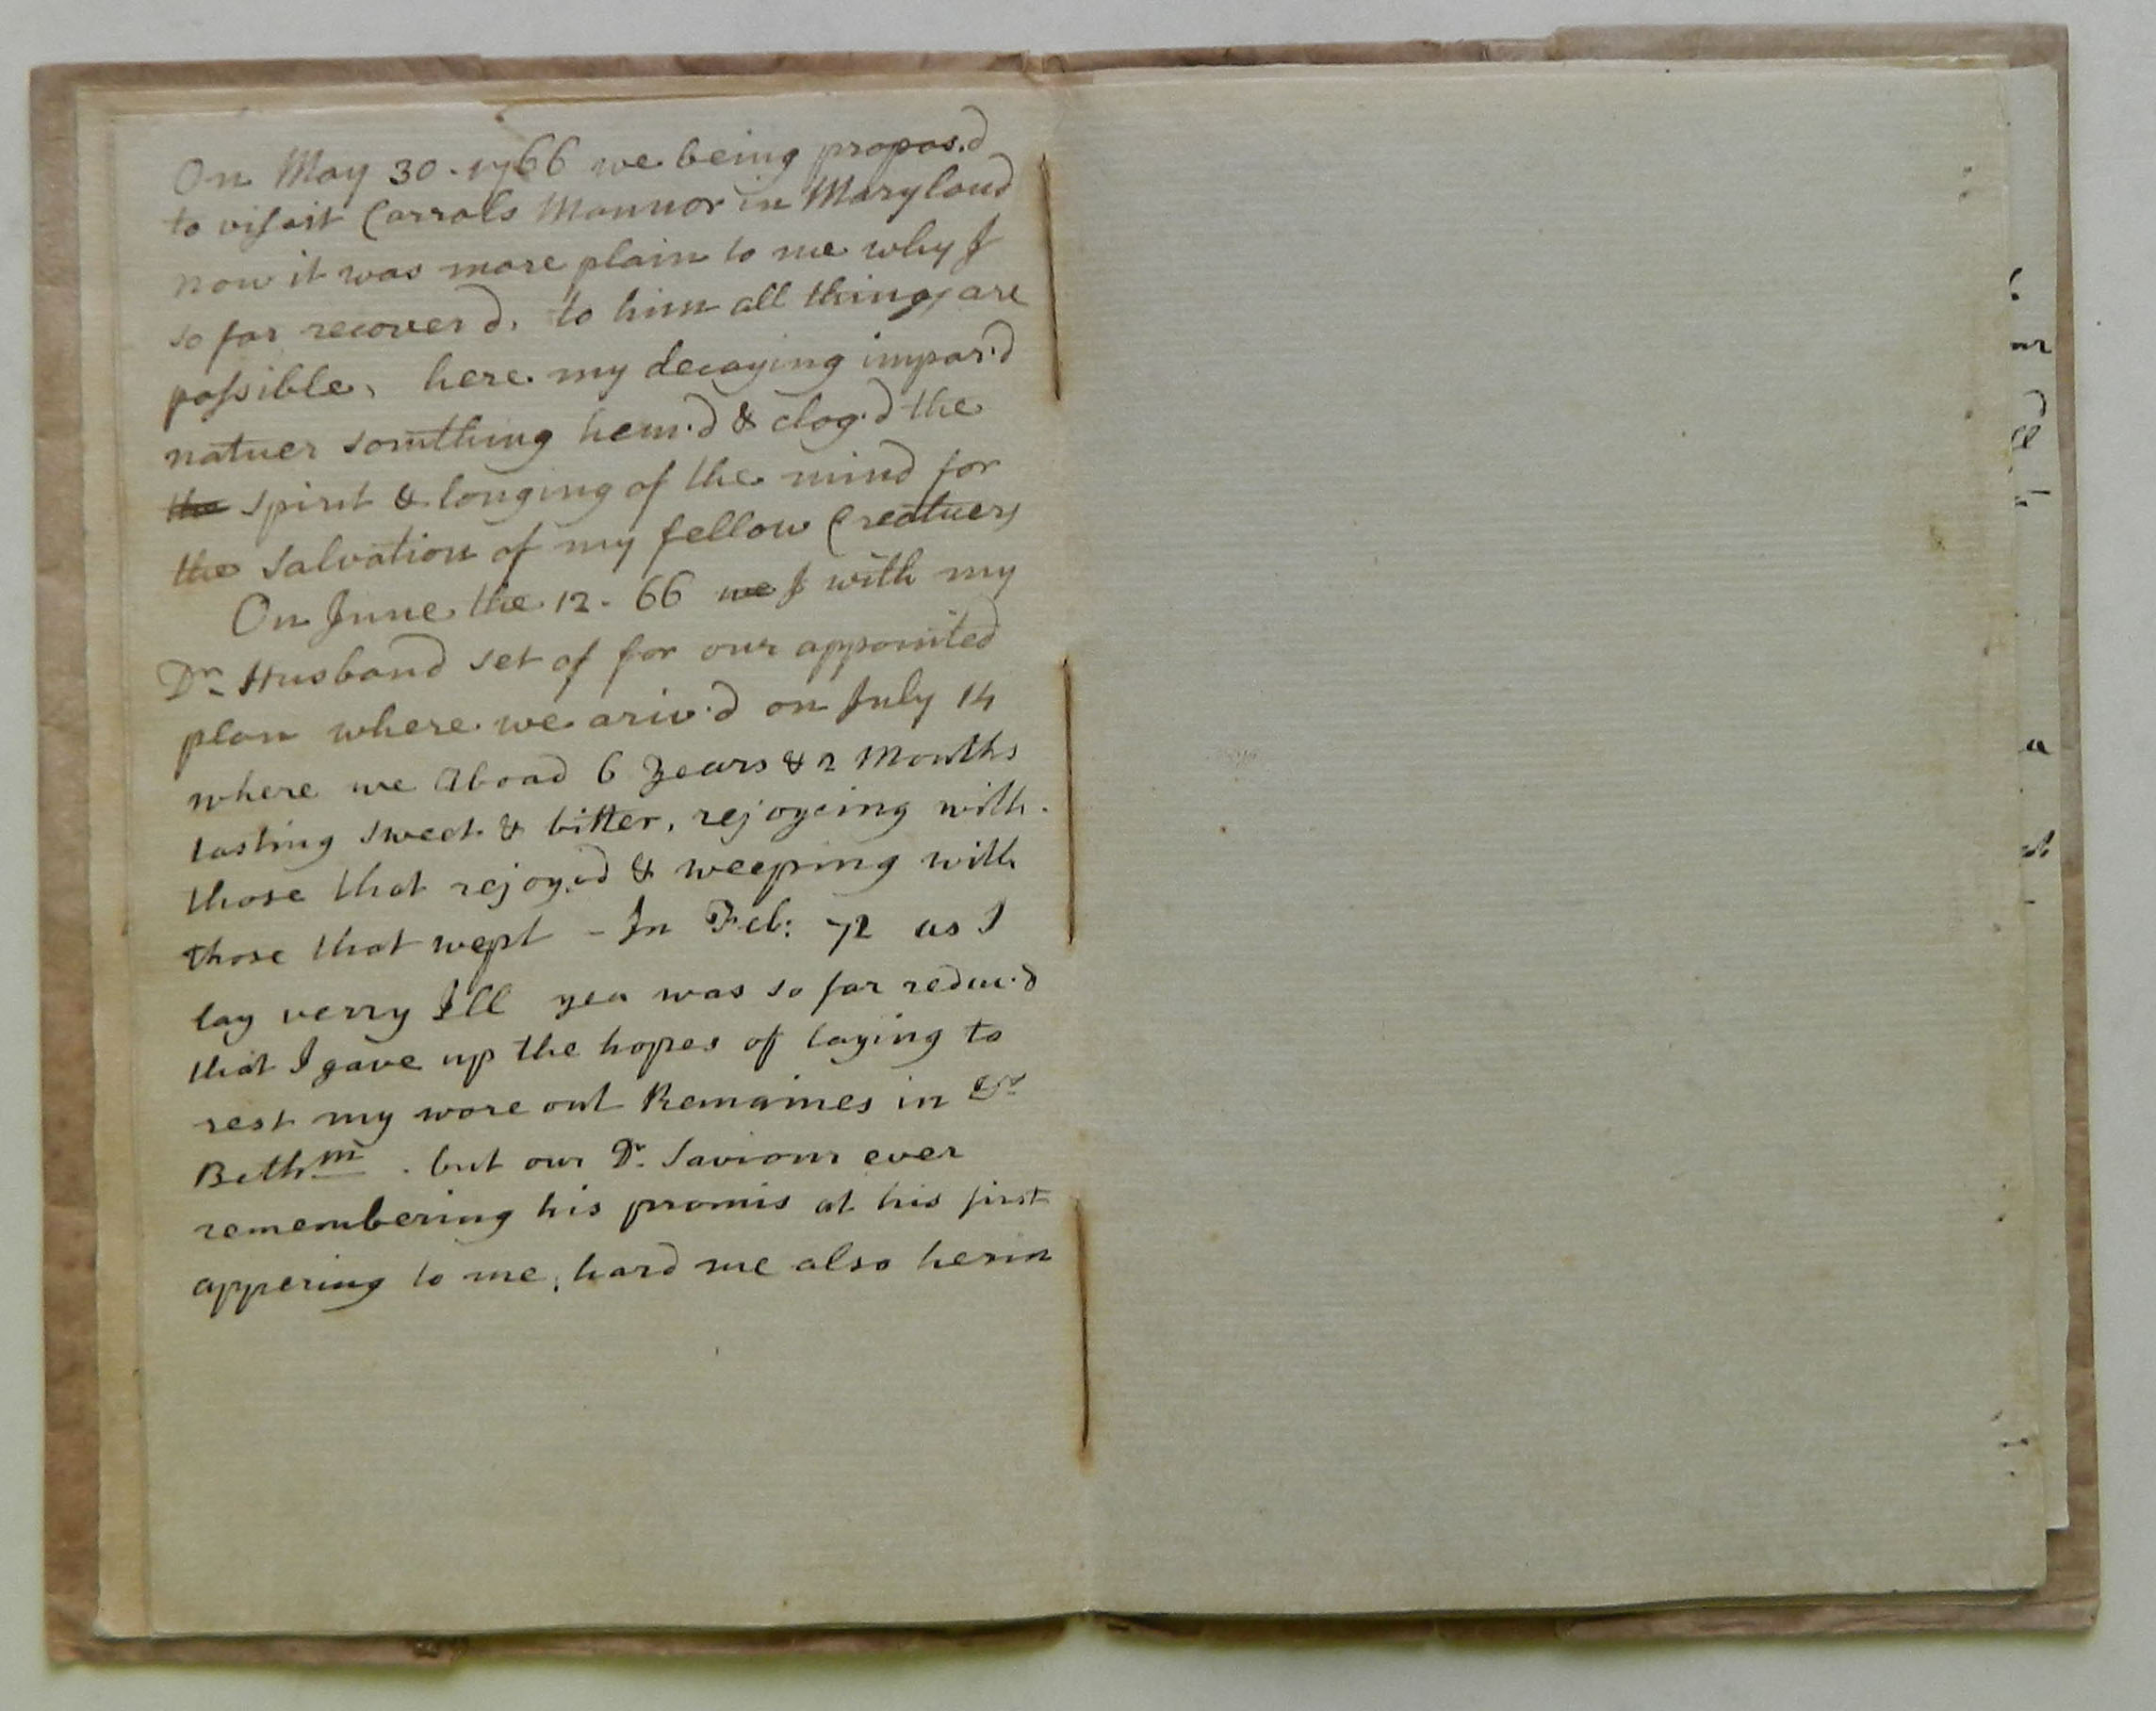 On May 30. 1766 we being propos.d
to visait Carrols Mannor in Maryland
now it was more plain to me why I
so far recover'd, to him all things are
possible, here my decaying impar.d
natuer somthing hem.d & clog.d the
the spirit & longing of the mind for
the salvation of my fellow Creatuers
On June the 12. 66 we I with my
Dr Husband set of for our appointed
plan where we ariv.d on July 14
where we Aboad 6 Years & 2 Months
tasting sweet & bitter, rejoycing with
those that rejoyc.d & weeping with
those that wept - In Feb: 72 as I
lay verry Ill yea was so far reduc.d
that I gave up the hopes of laying to
rest my wore out Remaines in Dr
Bethm . but our Dr Saviour ever
remembering his promis at his first
appering to me, hard me also herin